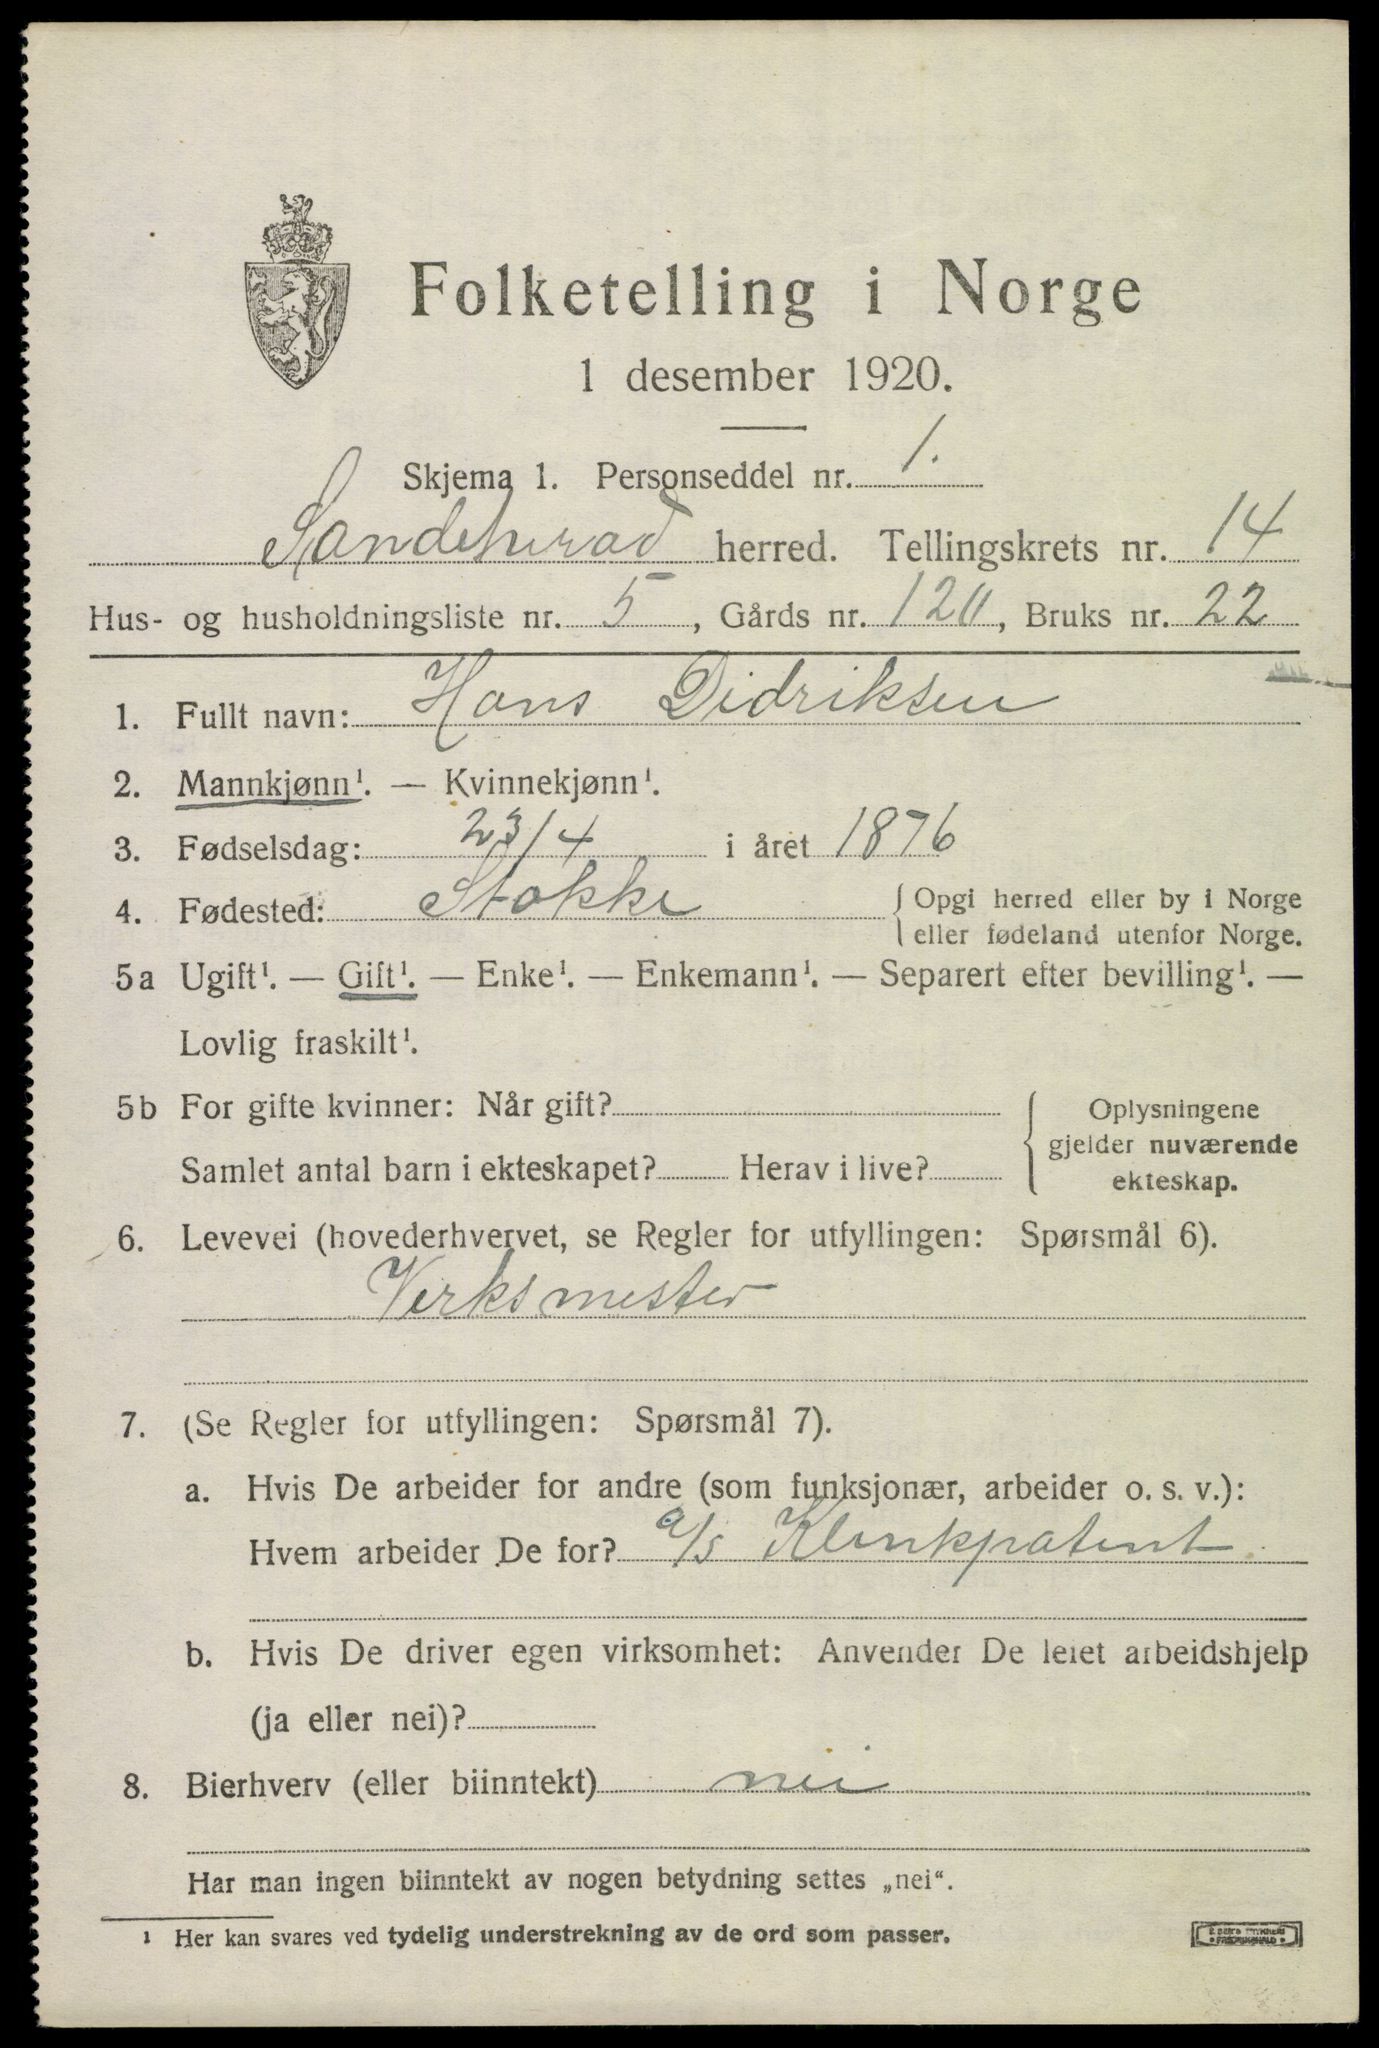 Folketelling i Norge
1 desember 1920.
Skjema 1. Personseddel nr. 1.
Sandeherad herred. Tellingskrets nr. 14
Hus- og husholdningsliste nr. 5, Gårds nr. 120, Bruks nr. 22
1. Fullt navn: Hans Didriksen
2. Mannkjønn¹. — Kvinnekjønn¹.
3. Fødselsdag: 23/4 i året 1876
4. Fødested: Stokke { Opgi herred eller by i Norge
eller fødeland utenfor Norge.
5a Ugift¹. — Gift¹. — Enke¹. — Enkemann¹. — Separert efter bevilling¹. —
Lovlig fraskilt¹.
5b For gifte kvinner: Når gift? { Oplysningene
gjelder nuværende
Samlet antal barn i ekteskapet? Herav i live? ekteskap.
6. Levevei (hovederhvervet, se Regler for utfyllingen: Spørsmål 6).
Verksmester
7. (Se Regler for utfyllingen: Spørsmål 7).
a. Hvis De arbeider for andre (som funksjonær, arbeider o. s. v.):
Hvem arbeider De for? a/s Klinkpatent
b. Hvis De driver egen virksomhet: Anvender De leiet arbeidshjelp
(ja eller nei)?
8. Bierhverv (eller biinntekt) nei
Har man ingen biinntekt av nogen betydning settes „nei“.
¹ Her kan svares ved tydelig understrekning av de ord som passer.